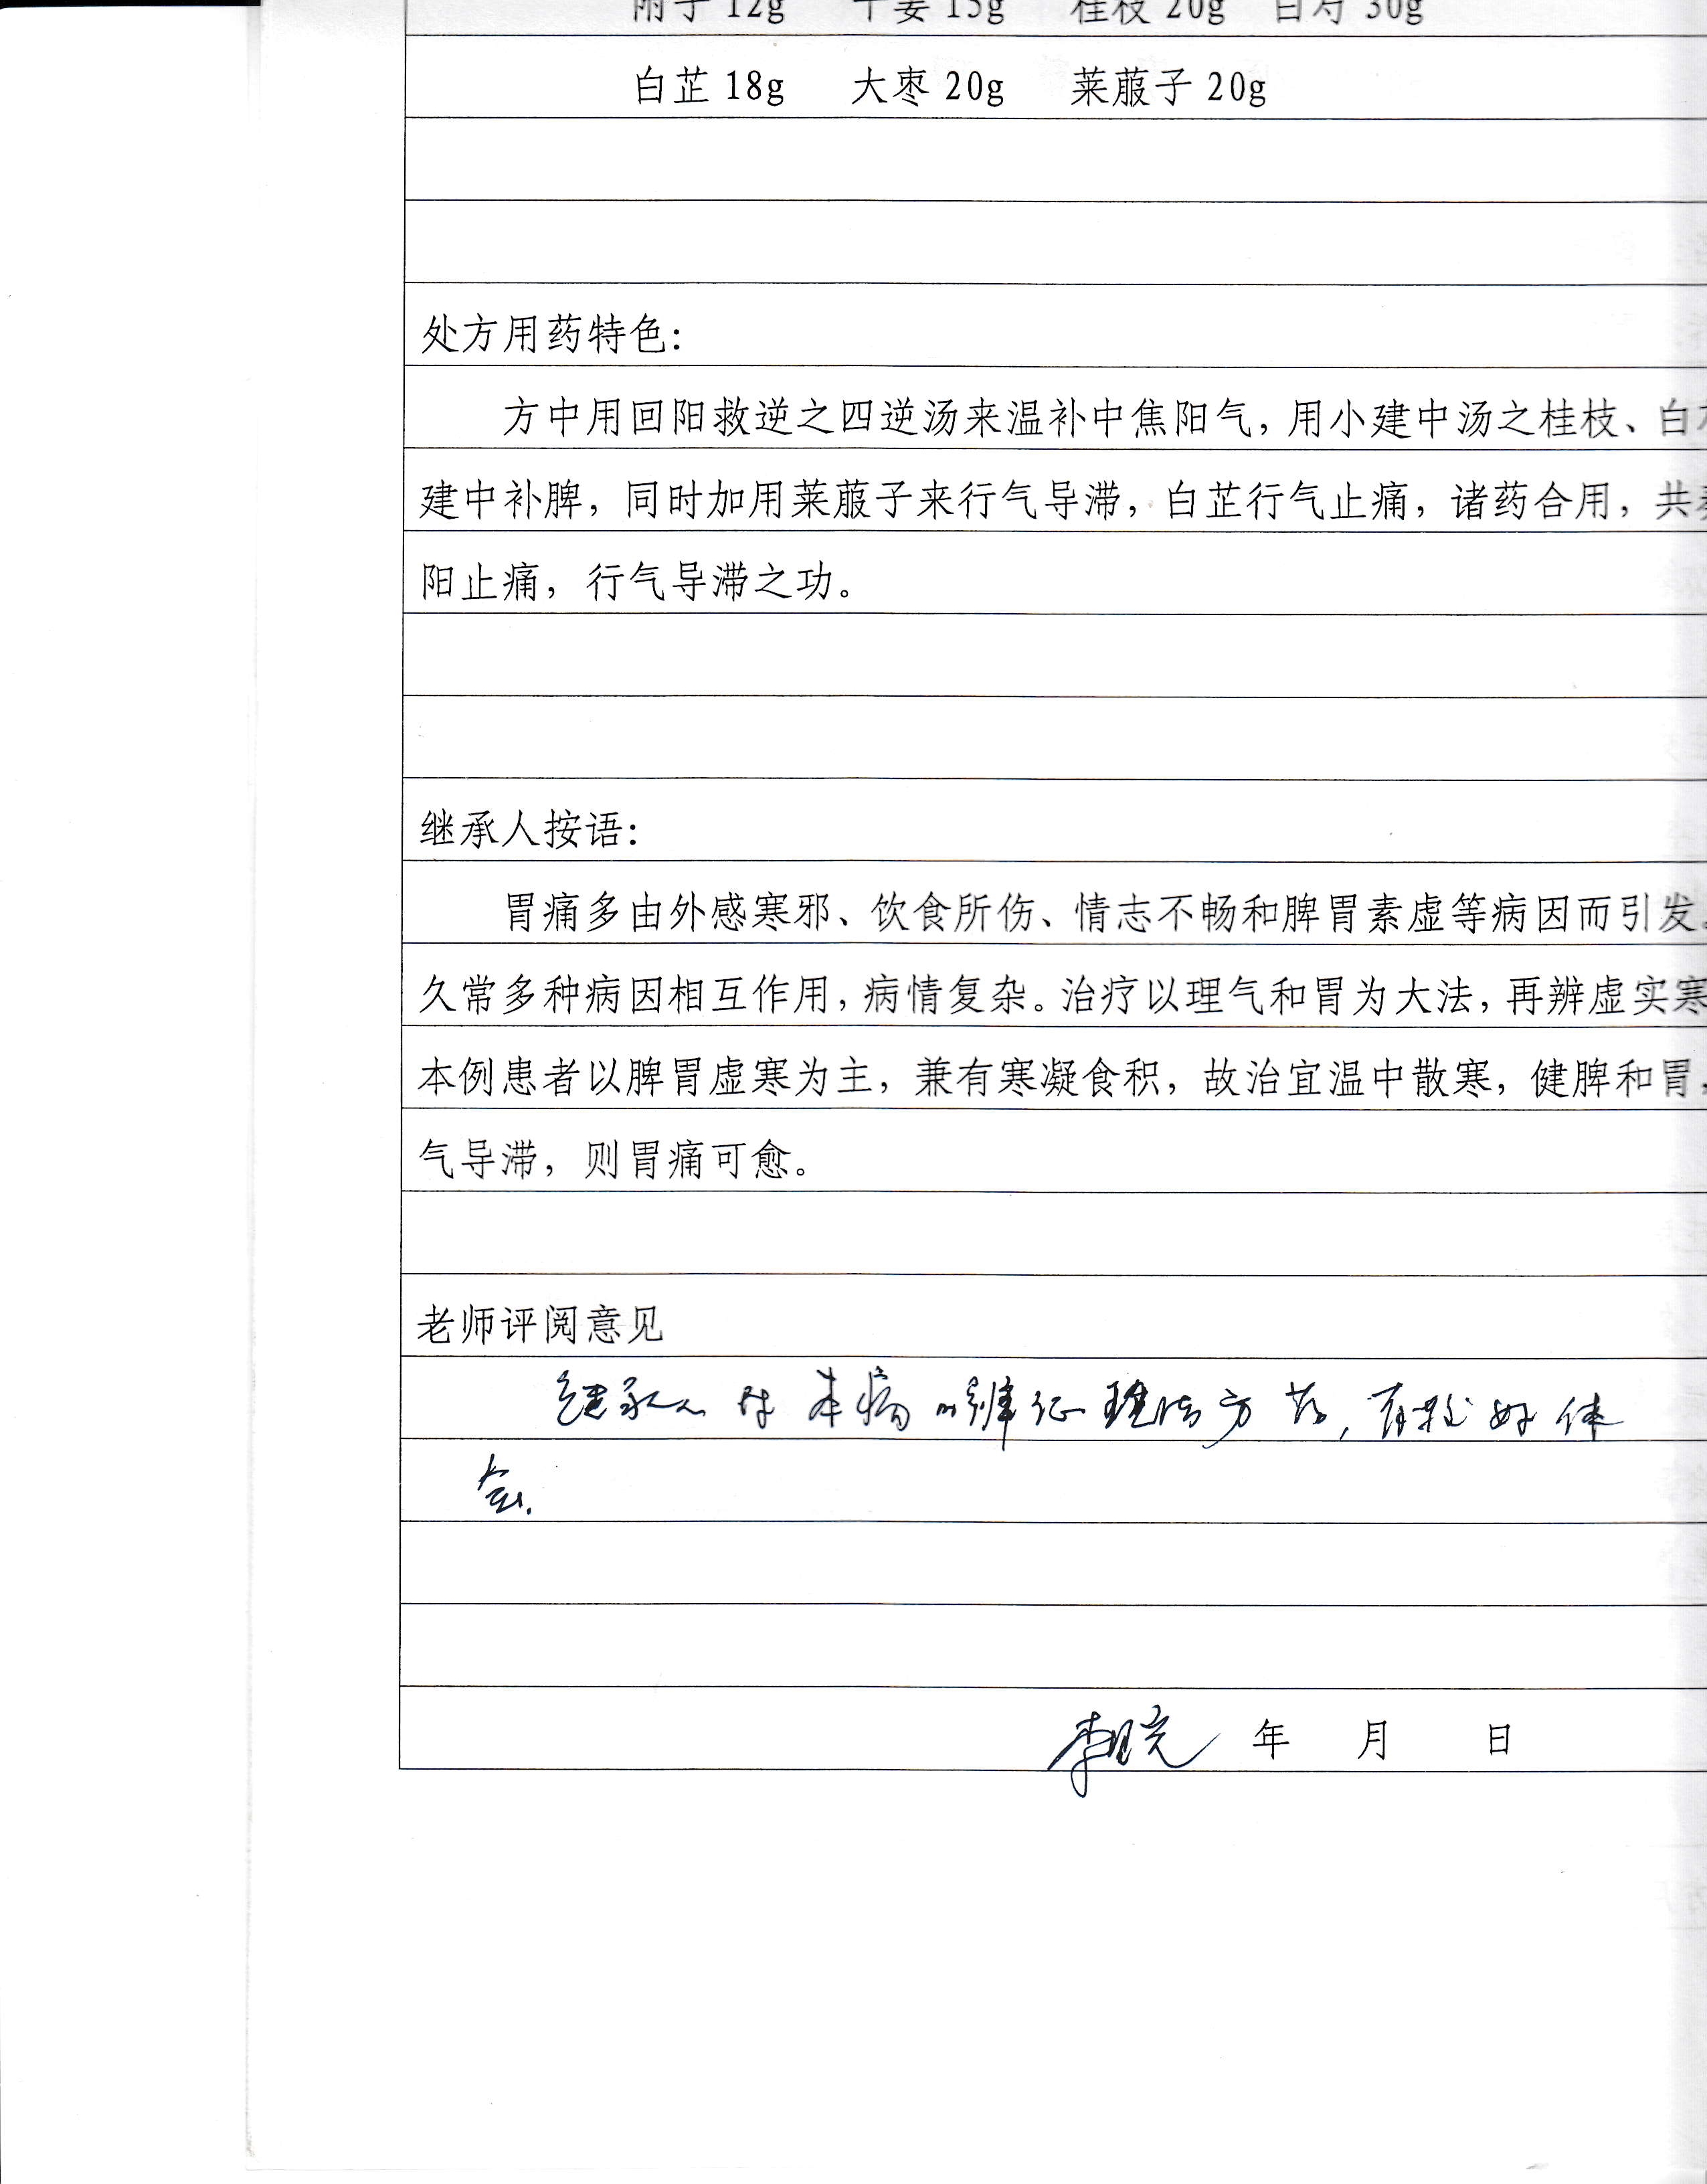 附子 12g 干姜 15g 桂枝 20g 白芍 30g
白芷 18g 大枣 20g 莱菔子 20g
处方用药特色：
方中用回阳救逆之四逆汤来温补中焦阳气，用小建中汤之桂枝、白
建中补脾，同时加用莱菔子来行气导滞，白芷行气止痛，诸药合用，共
阳止痛，行气导滞之功。
继承人按语：
胃痛多由外感寒邪、饮食所伤、情志不畅和脾胃素虚等病因而引发。
久常多种病因相互作用，病情复杂。治疗以理气和胃为大法，再辨虚实寒
本例患者以脾胃虚寒为主，兼有寒凝食积，故治宜温中散寒，健脾和胃，
气导滞，则胃痛可愈。
老师评阅意见
继承人对本病的辨证理法方药，有较好体
会.
年 月 日